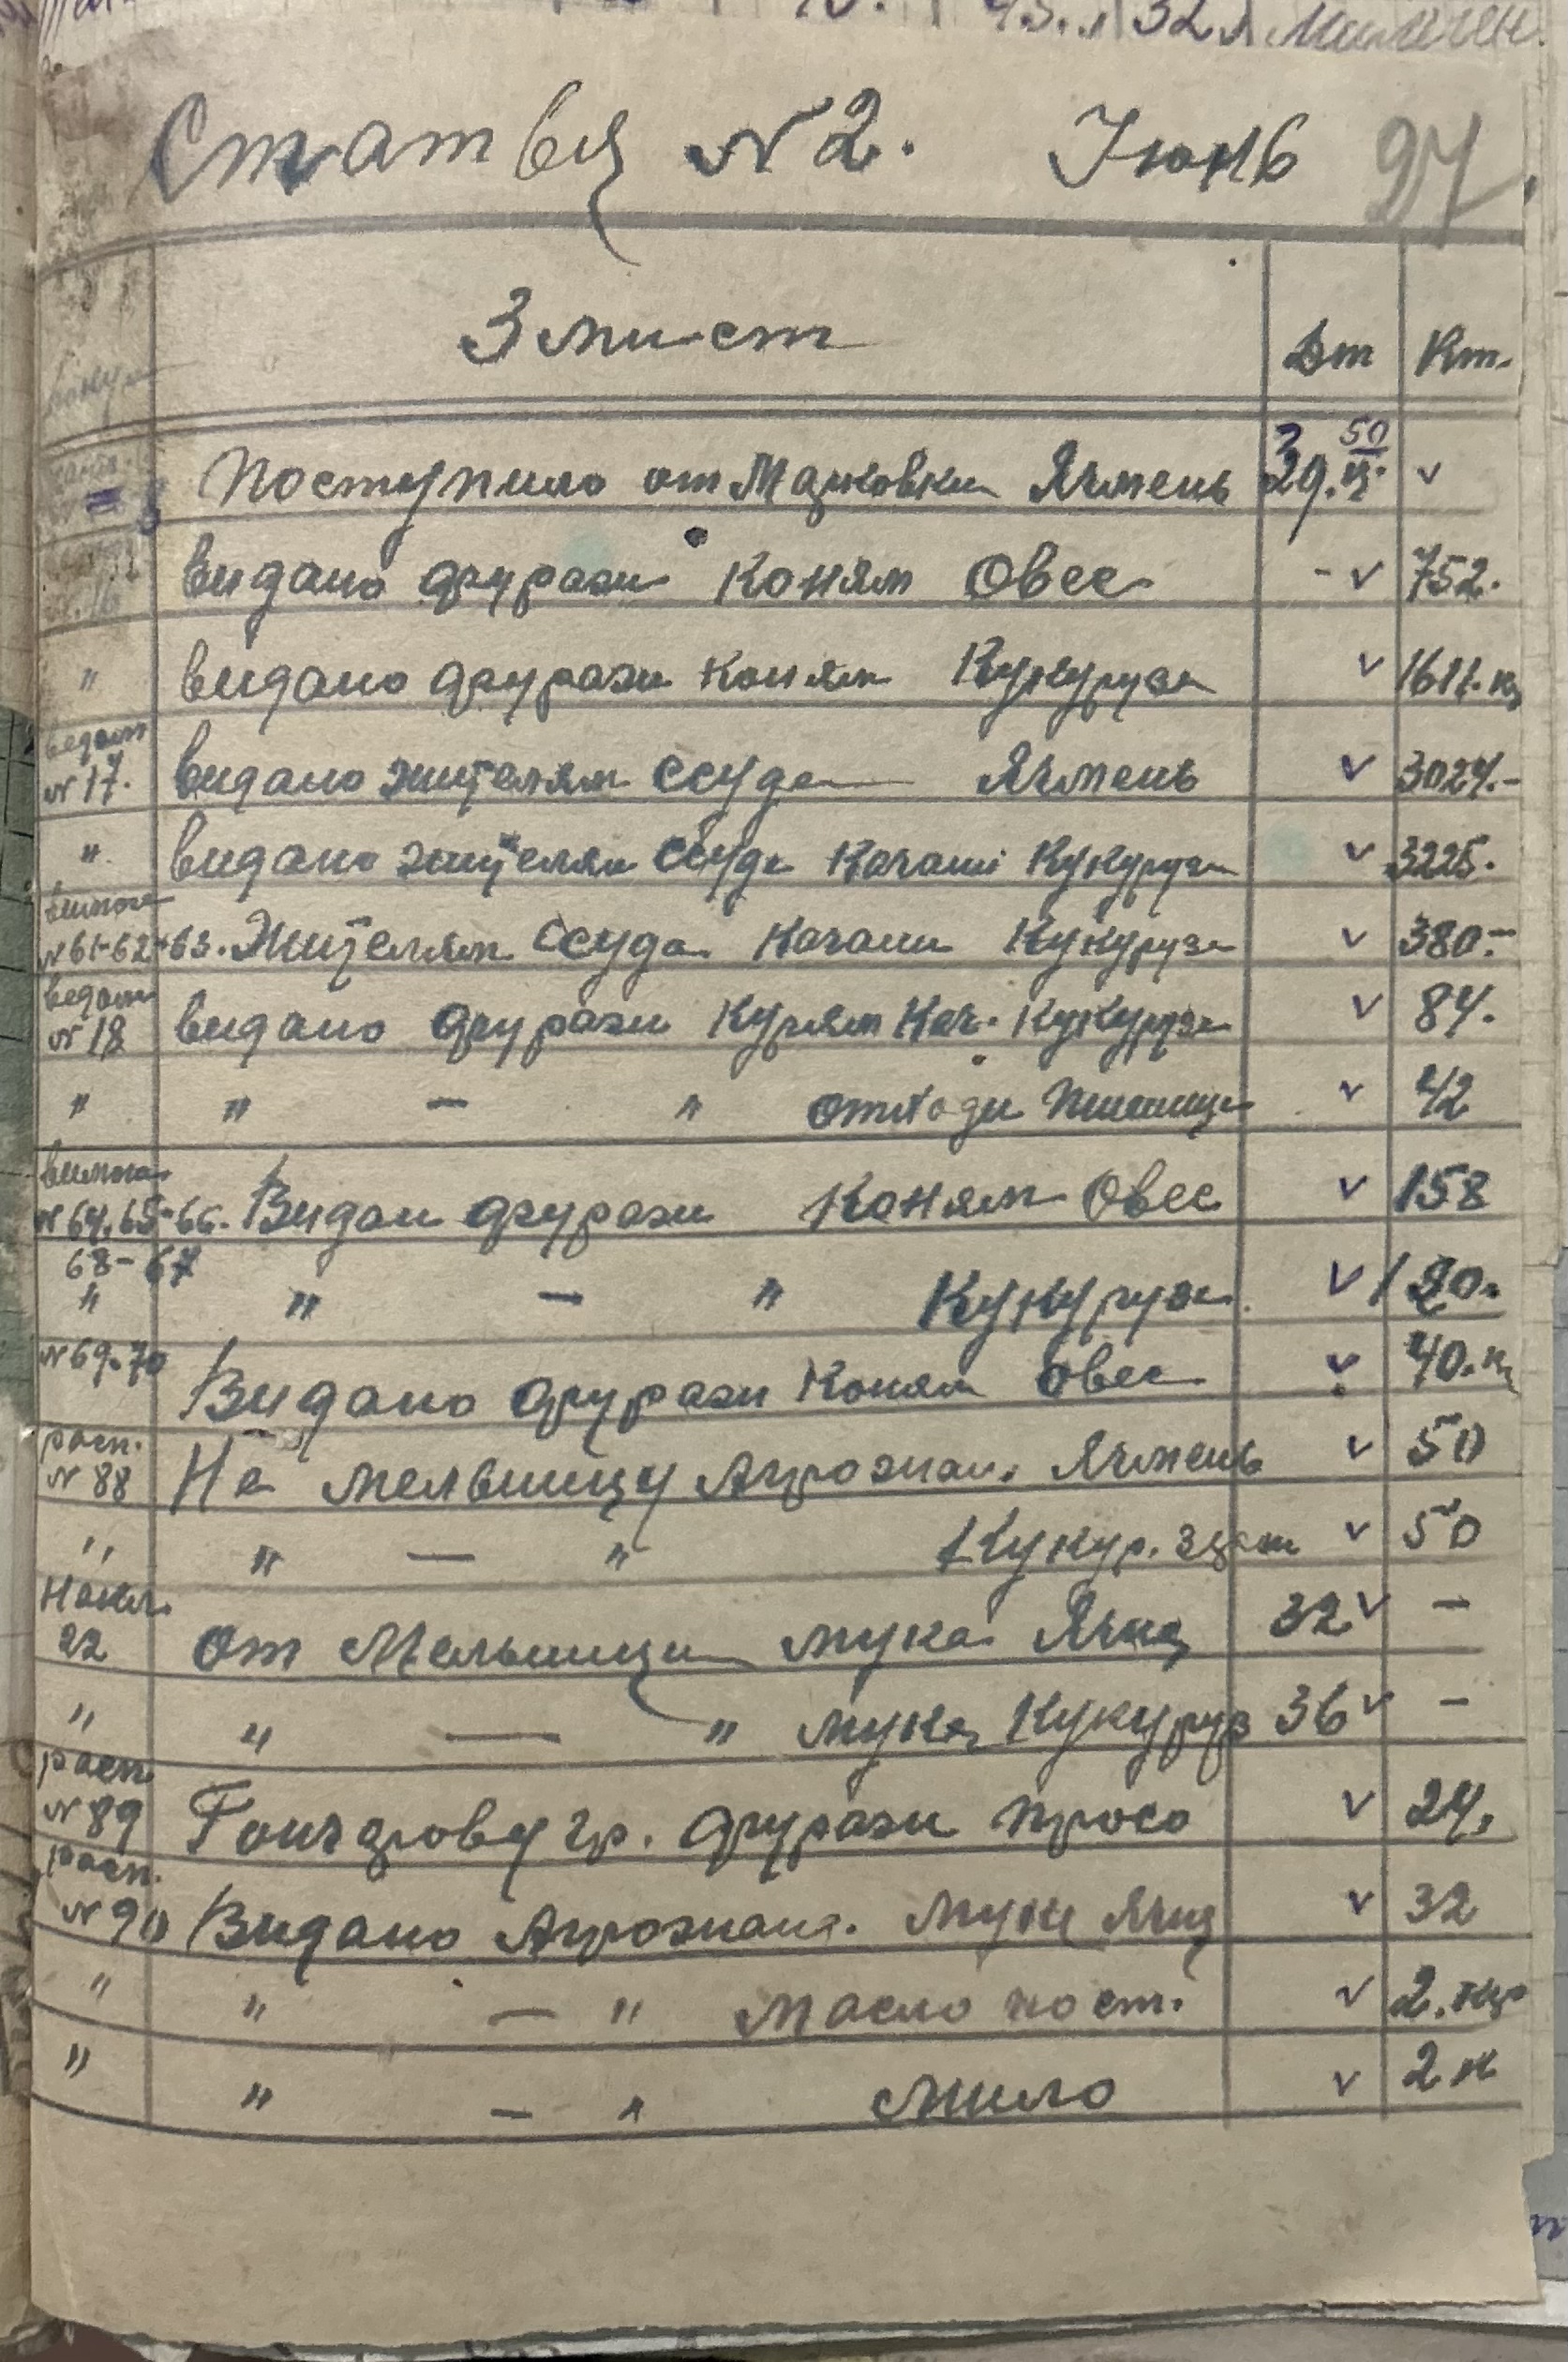 Статья № 2. Июнь 27
Змист Дт Кт.
Поступило от Ячмень 50 ✓
видано фуражи Коням Овес - ✓ 752.
" видано фуражи Коням Кукуруза ✓ 1611.кг
ведом
№ 17. видано жителям ссуда Ячмень ✓ 3024.-
". видано жителям ссуда Качани Кукуруза ✓ 3225.
вимога
№ 61-62-63. Жителям ссуда Качани Кукуруза ✓ 380.-
ведом
№ 18 видано фуражи Курям Кач. Кукуруза ✓ 84.
" " — " отходи Пшеница ✓ 42
вимога
№ 64.65-66. Видан фуражи Коням Овес ✓ 158
68-67
" " — " Кукуруза. ✓ 120.
№ 69.70 Видано фуражи Коням овес ✓ 40.кг
расп.
№ 88 На мельницу Ячмень ✓ 50
" " — " Кукур. ✓ 50
Накл.
22 От Мельници мука Ячна 32 ✓ —
" " — " мука Кукуруз 36 ✓ —
расп
№ 89 гр. фуражи просо ✓ 24.
расп.
№ 90 Видано Муки Ячна ✓ 32
" " — " Масло пост. ✓ 2.кг
" " — " Мило ✓ 2 к